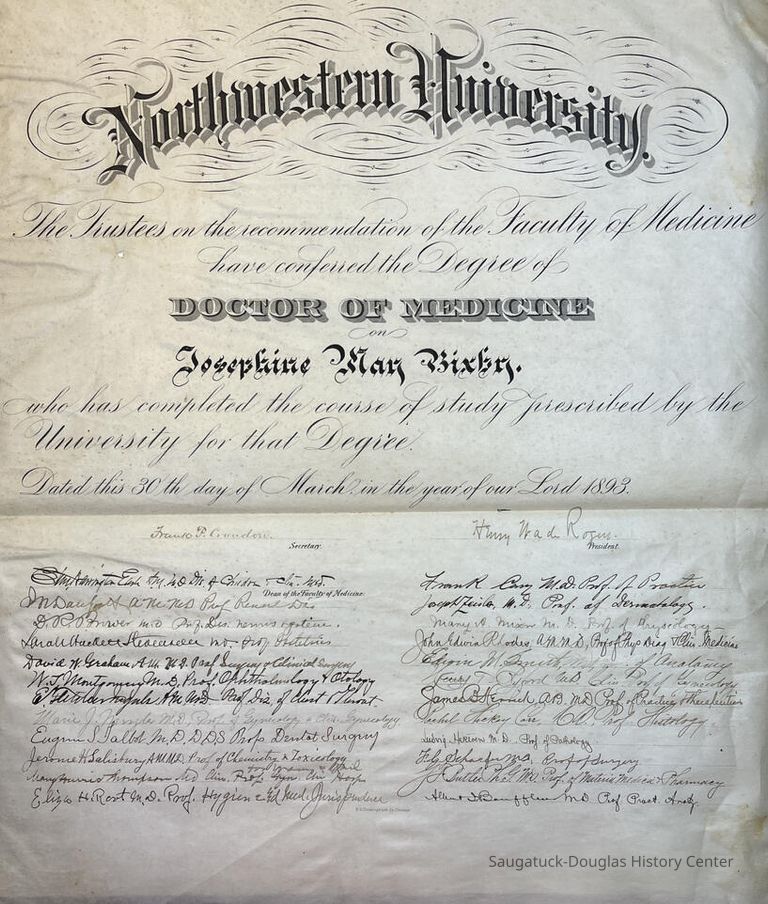 Northwestern University.
The Trustees on the recommendation of the Faculty of Medicine
have conferred the Degree of
DOCTOR OF MEDICINE
on
Josephine May Bixby.
who has completed the course of study prescribed by the
University for that Degree.
Dated this 30th day of March in the year of our Lord 1893.
Frank P. Crandon.
Secretary.
Henry Wade Rogers.
President.
Dean of the Faculty of Medicine.
D. R. Brower M.D. Prof. Dis. nervous system.
Sarah Hackett Stevenson M.D. Prof. Obstetrics
David W. Graham, A.M. M.D. Prof Surgery & Clinical Surgery
W. T. Montgomery M.D. Prof. Ophthalmology & Otology
Prof. Dis. of Chest & Throat
Marie J. Mergler M.D. Prof. of Gynecology & Clin. Gynecology
Eugene S. Talbot M.D. D.D.S Prof. Dental Surgery
Jerome H. Salisbury A.M. M.D. Prof. of Chemistry & Toxicology
Eliza H. Root M.D. Prof. Hygiene & Med. Jurisprudence
Frank Cary M.D. Prof. of Practice
Joseph Zeisler, M.D., Prof. of Dermatology.
Mary A. Mixer M.D. Prof. of Physiology
John Edwin Rhodes, A.M. M.D., Prof of Phys Diag & Clin. Medicine
Prof. of Anatomy
Gynecology
James B. Herrick, A.B. M.D. Prof of Practice & Therapeutics
Rachel Hickey Carr, M.D. Prof. Histology.
Ludvig Hektoen M.D. Prof. of Pathology
F. C. Schaefer M.D. Prof of Surgery
Prof. of Materia Medica & Pharmacy
M.D. Prof Pract. Anat.
Saugatuck-Douglas History Center